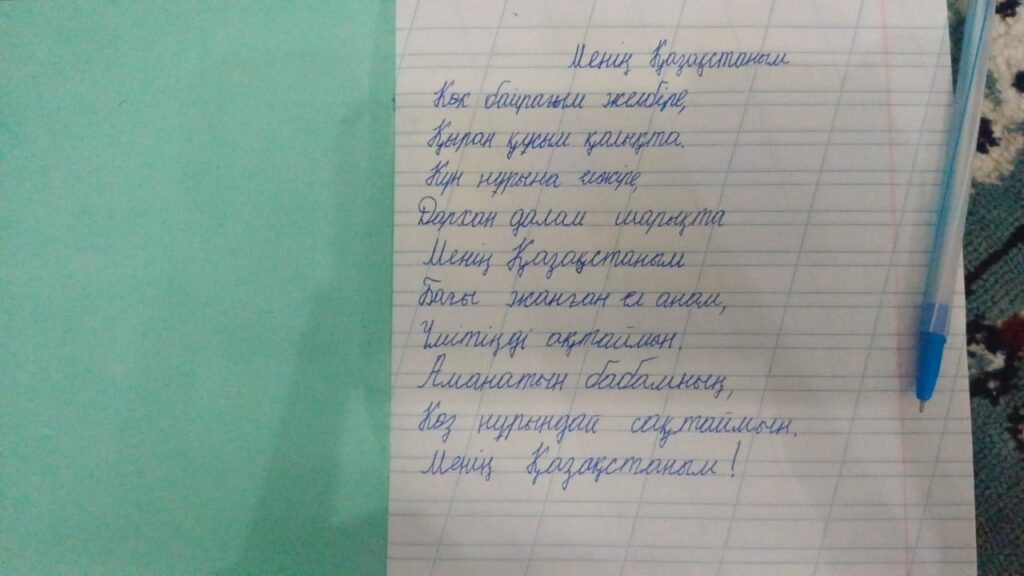 Менің Қазақстаным
Көк байрағым желбіре,
Қыран құсым қалықта.
Күн нұрына елжіре,
Дархан далам шарықта
Менің Қазақстаным
Бағы жанған ел анам,
Үмітіңді ақтаймын.
Аманатын бабамның,
Көз нұрындай сақтаймын.
Менің Қазақстаным!